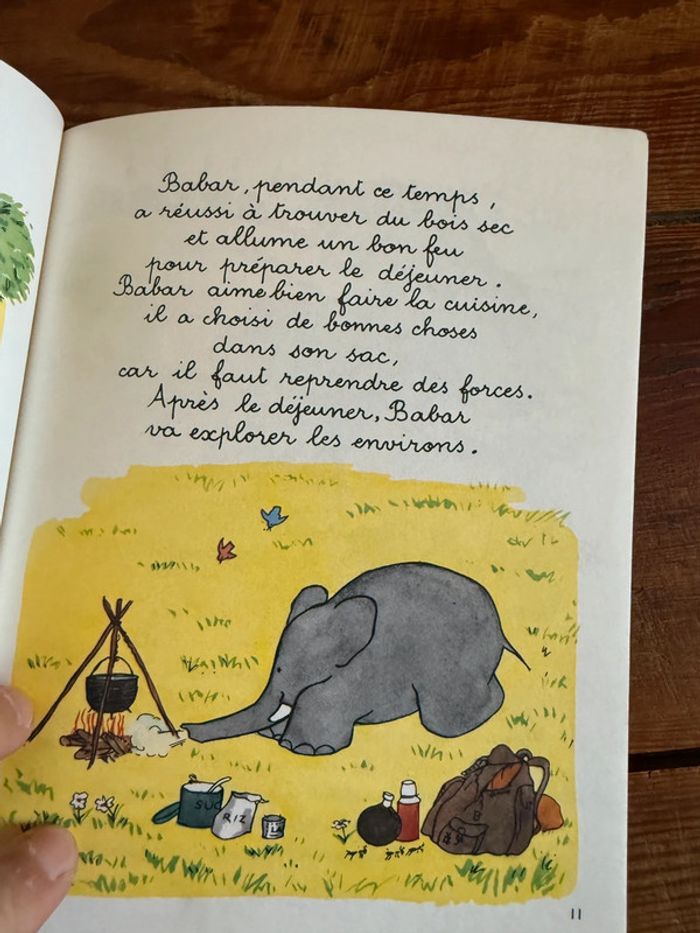 Babar, pendant ce temps,
a réussi à trouver du bois sec
et allume un bon feu
pour préparer le déjeuner.
Babar aime bien faire la cuisine,
il a choisi de bonnes choses
dans son sac,
car il faut reprendre des forces.
Après le déjeuner, Babar
va explorer les environs.
SUC
RIZ
B
11